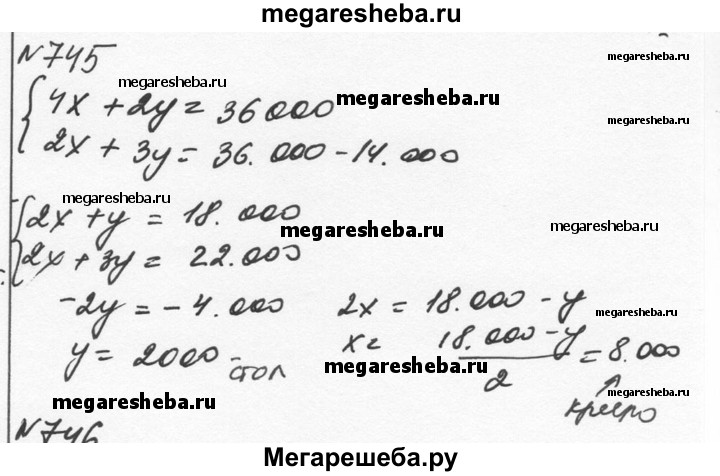 megaresheba.ru
N 745
megaresheba.ru
megaresheba.ru
4x + 2y = 36 000
megaresheba.ru
2x + 3y = 36.000 - 14.000
megaresheba.ru
2x + y = 18.000
megaresheba.ru
megaresheba.ru
2x + 3y = 22.000
-2y = -4.000 2x = 18.000 - y
megaresheba.ru
y = 2000 - стол x = 18.000 - y / 2 = 8.000
megaresheba.ru
megaresheba.ru
megaresheba.ru
кресло
N 746
Мегарешеба.ру